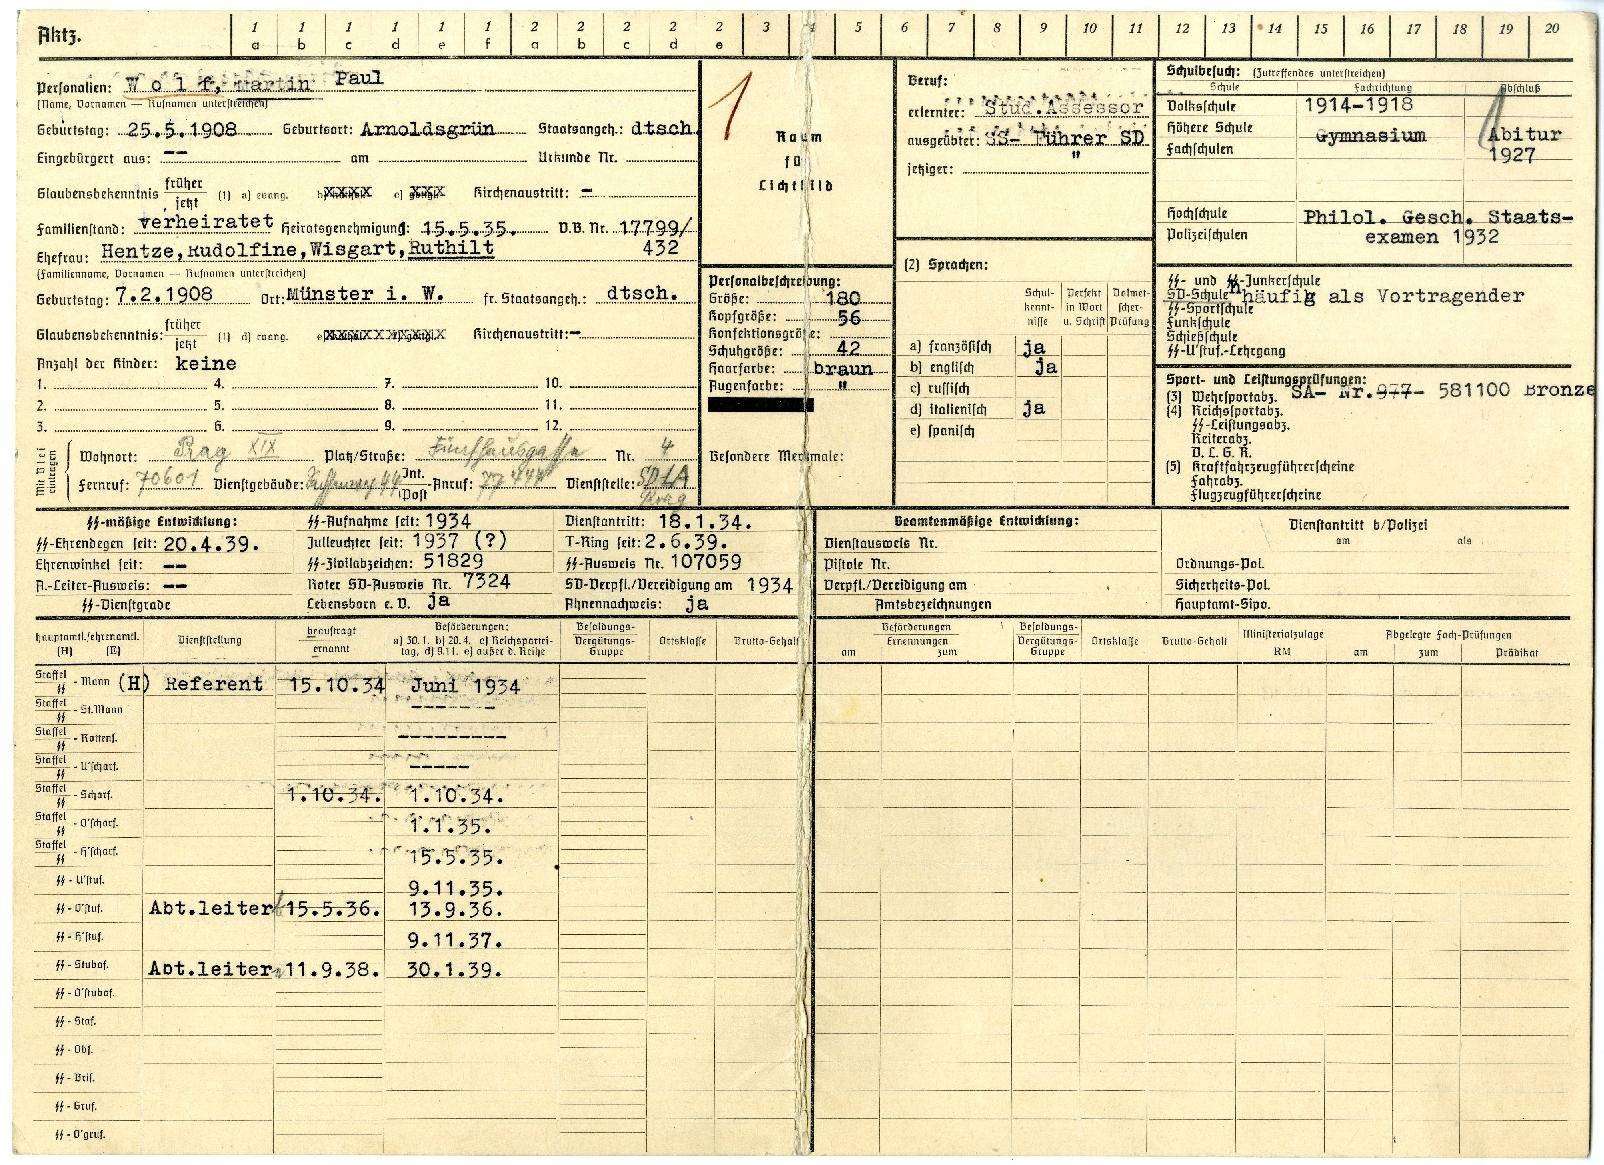 Aktz. 1a 1b 1c 1d 1e 1f 2a 2b 2c 2d 2e 3 4 5 6 7 8 9 10 11 12 13 14 15 16 17 18 19 20
Personalien: Wolf, Martin Paul
(Name, Vornamen — Rufnamen unterstreichen)
Geburtstag: 25.5.1908 Geburtsort: Arnoldsgrün Staatsangeh.: dtsch.
Eingebürgert aus: -- am Urkunde Nr.
Glaubensbekenntnis früher/jetzt (1) a) evang. b) xxxx c) xxx Kirchenaustritt: -
Familienstand: verheiratet Heiratsgenehmigung: 15.5.35. D.B. Nr. 17799/
Ehefrau: Hentze, Rudolfine, Wisgart, Ruthilt 432
(Familienname, Vornamen — Rufnamen unterstreichen)
Geburtstag: 7.2.1908 Ort: Münster i. W. fr. Staatsangeh.: dtsch.
Glaubensbekenntnis: früher/jetzt (1) d) evang. Kirchenaustritt: -
Anzahl der Kinder: keine
1. 4. 7. 10.
2. 5. 8. 11.
3. 6. 9. 12.
Mit Blei eintragen
Wohnort: Prag XIX Platz/Straße: Fünfhausgasse Nr. 4
Fernruf: 70601 Dienstgebäude: Int./Post Anruf: 77444 Dienststelle: SDLA Prag
1
Raum
für
Lichtbild
Personalbeschreibung:
Größe: 180
Kopfgröße: 56
Konfektionsgröße:
Schuhgröße: 42
Haarfarbe: braun
Augenfarbe: "
Besondere Merkmale:
Beruf:
erlernter: Stud.Assessor
ausgeübter: SS- Führer SD
jetziger: "
(2) Sprachen:
Schulkenntnisse Perfekt in Wort u. Schrift Dolmetscher-Prüfung
a) französisch ja
b) englisch ja
c) russisch
d) italienisch ja
e) spanisch
Schulbesuch: (Zutreffendes unterstreichen)
Schule Fachrichtung Abschluß
Volksschule 1914-1918
Höhere Schule Gymnasium Abitur
Fachschulen 1927
Hochschule Philol. Gesch. Staats-
Polizeischulen examen 1932
SS- und SS-Junkerschule
SD-Schule häufig als Vortragender
SS-Sportschule
Funkschule
Schießschule
SS-U'stuf.-Lehrgang
Sport- und Leistungsprüfungen:
(3) Wehrsportabz. SA- Nr.977- 581100 Bronze
(4) Reichssportabz.
SS-Leistungsabz.
Reiterabz.
D. L. G. R.
(5) Kraftfahrzeugführerscheine
Fahrabz.
Flugzeugführerscheine
SS-mäßige Entwicklung: SS-Aufnahme seit: 1934 Dienstantritt: 18.1.34.
SS-Ehrendegen seit: 20.4.39. Julleuchter seit: 1937 (?) T-Ring seit: 2.6.39.
Ehrenwinkel seit: -- SS-Zivilabzeichen: 51829 SS-Ausweis Nr. 107059
A.-Leiter-Ausweis: -- Roter SD-Ausweis Nr. 7324 SD-Verpfl./Vereidigung am 1934
SS-Dienstgrade Lebensborn e. V. ja Ahnennachweis: ja
Beamtenmäßige Entwicklung: Dienstantritt b/Polizei
Dienstausweis Nr. am als
Pistole Nr. Ordnungs-Pol.
Verpfl./Vereidigung am Sicherheits-Pol.
Amtsbezeichnungen Hauptamt-Sipo.
hauptamtl./ehrenamtl. (H) (E) Dienststellung beauftragt/ernannt Beförderungen: a) 30.1. b) 20.4. c) Reichsparteitag, d) 9.11. e) außer d. Reihe Besoldungs-/Vergütungs-Gruppe Ortsklasse Brutto-Gehalt
Beförderungen/Ernennungen am zum Besoldungs-/Vergütungs-Gruppe Ortsklasse Brutto-Gehalt Ministerialzulage RM am Abgelegte Fach-Prüfungen zum Prädikat
Staffel/SS - Mann (H) Referent 15.10.34 Juni 1934
Staffel/SS - St.Mann ------
Staffel/SS - Rottenf. ---------
Staffel/SS - U'scharf. -----
Staffel/SS - Scharf. 1.10.34. 1.10.34.
Staffel/SS - O'scharf. 1.1.35.
Staffel/SS - H'scharf. 15.5.35.
SS - U'stuf. 9.11.35.
SS - O'stuf. Abt.leiter 15.5.36. 13.9.36.
SS - H'stuf. 9.11.37.
SS - Stubaf. Abt.leiter 11.9.38. 30.1.39.
SS - O'stubaf.
SS - Staf.
SS - Obf.
SS - Brif.
SS - Gruf.
SS - O'gruf.